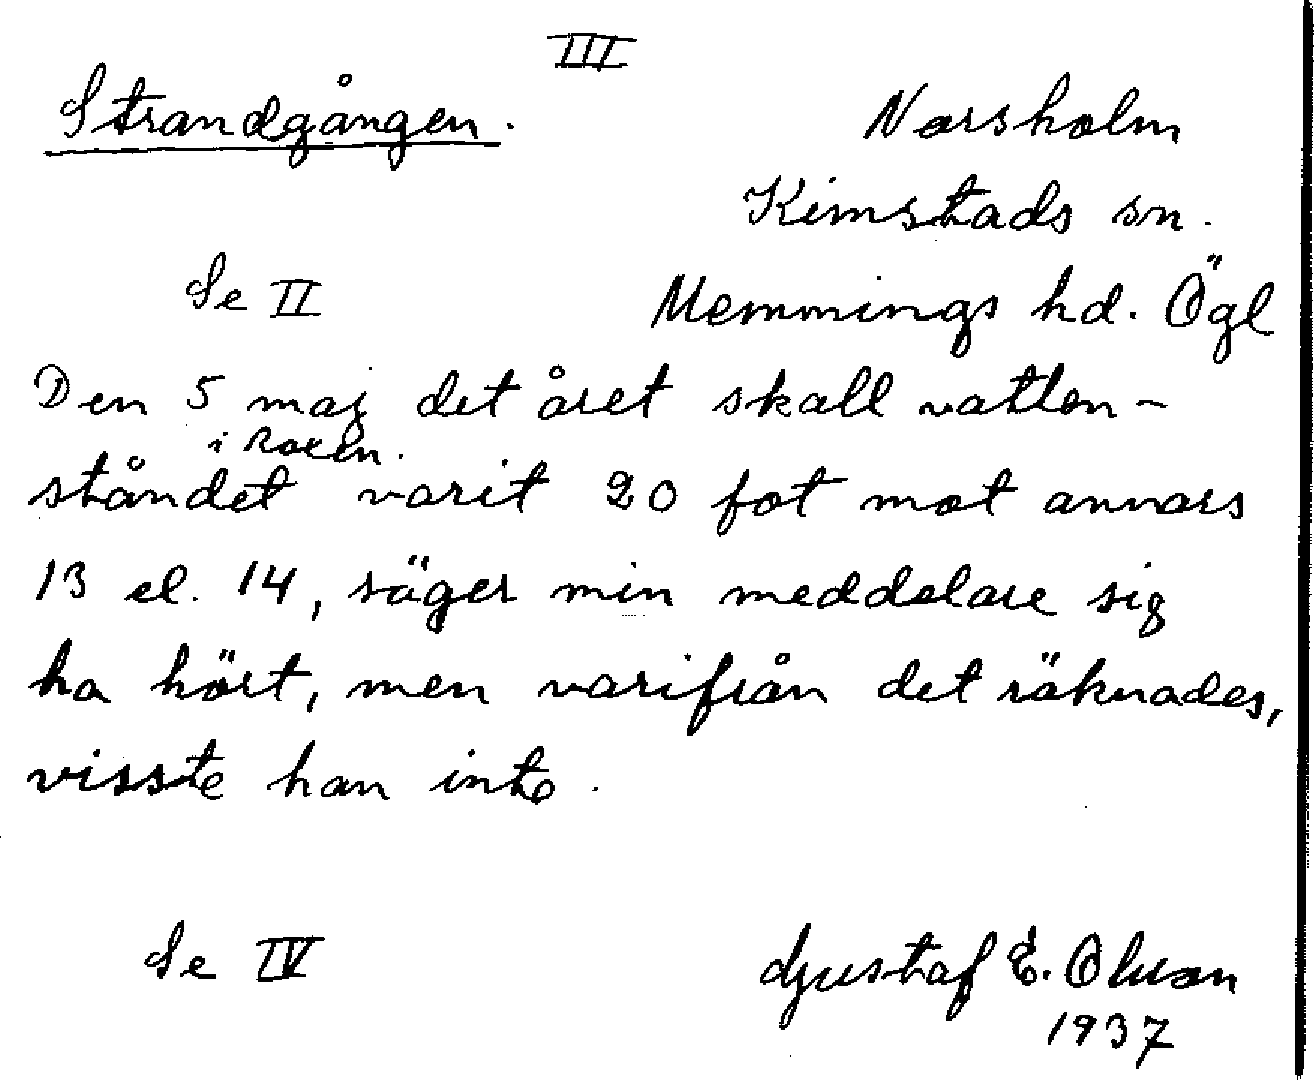 III
Strandgången.
Norsholm
Kimstads sn.
Se II
Memmings hd. Ögl
Den 5 maj det året skall vatten-
i Roxen.
ståndet varit 20 fot mot annars
13 el. 14, säger min meddelare sig
ha hört, men varifrån det räknades,
visste han inte.
Se IV
Gustaf E. Olsson
1937